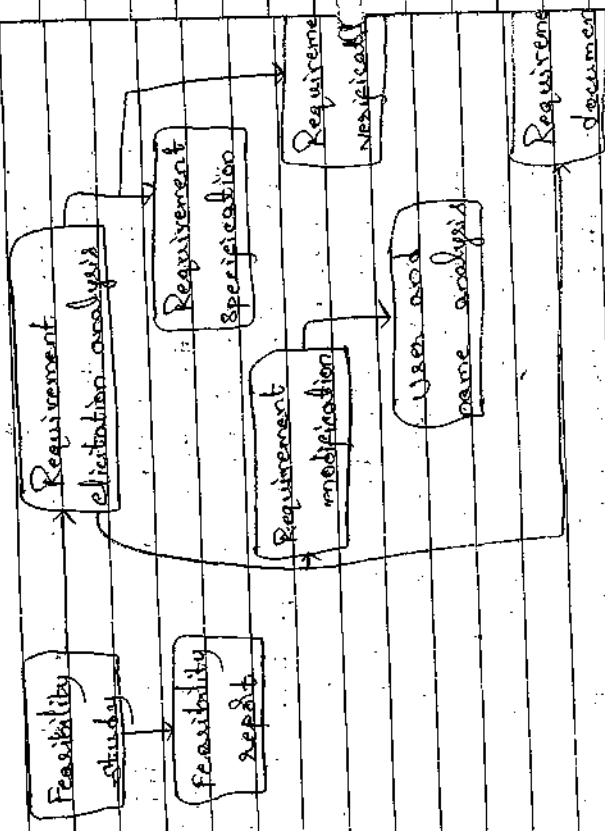 Feasibility
study
Feasibility
report
Requirement
elicitation analysis
Requirement
specification
Requirement
modification
User and
name analysis
Requireme
verificati
Requirene
documen